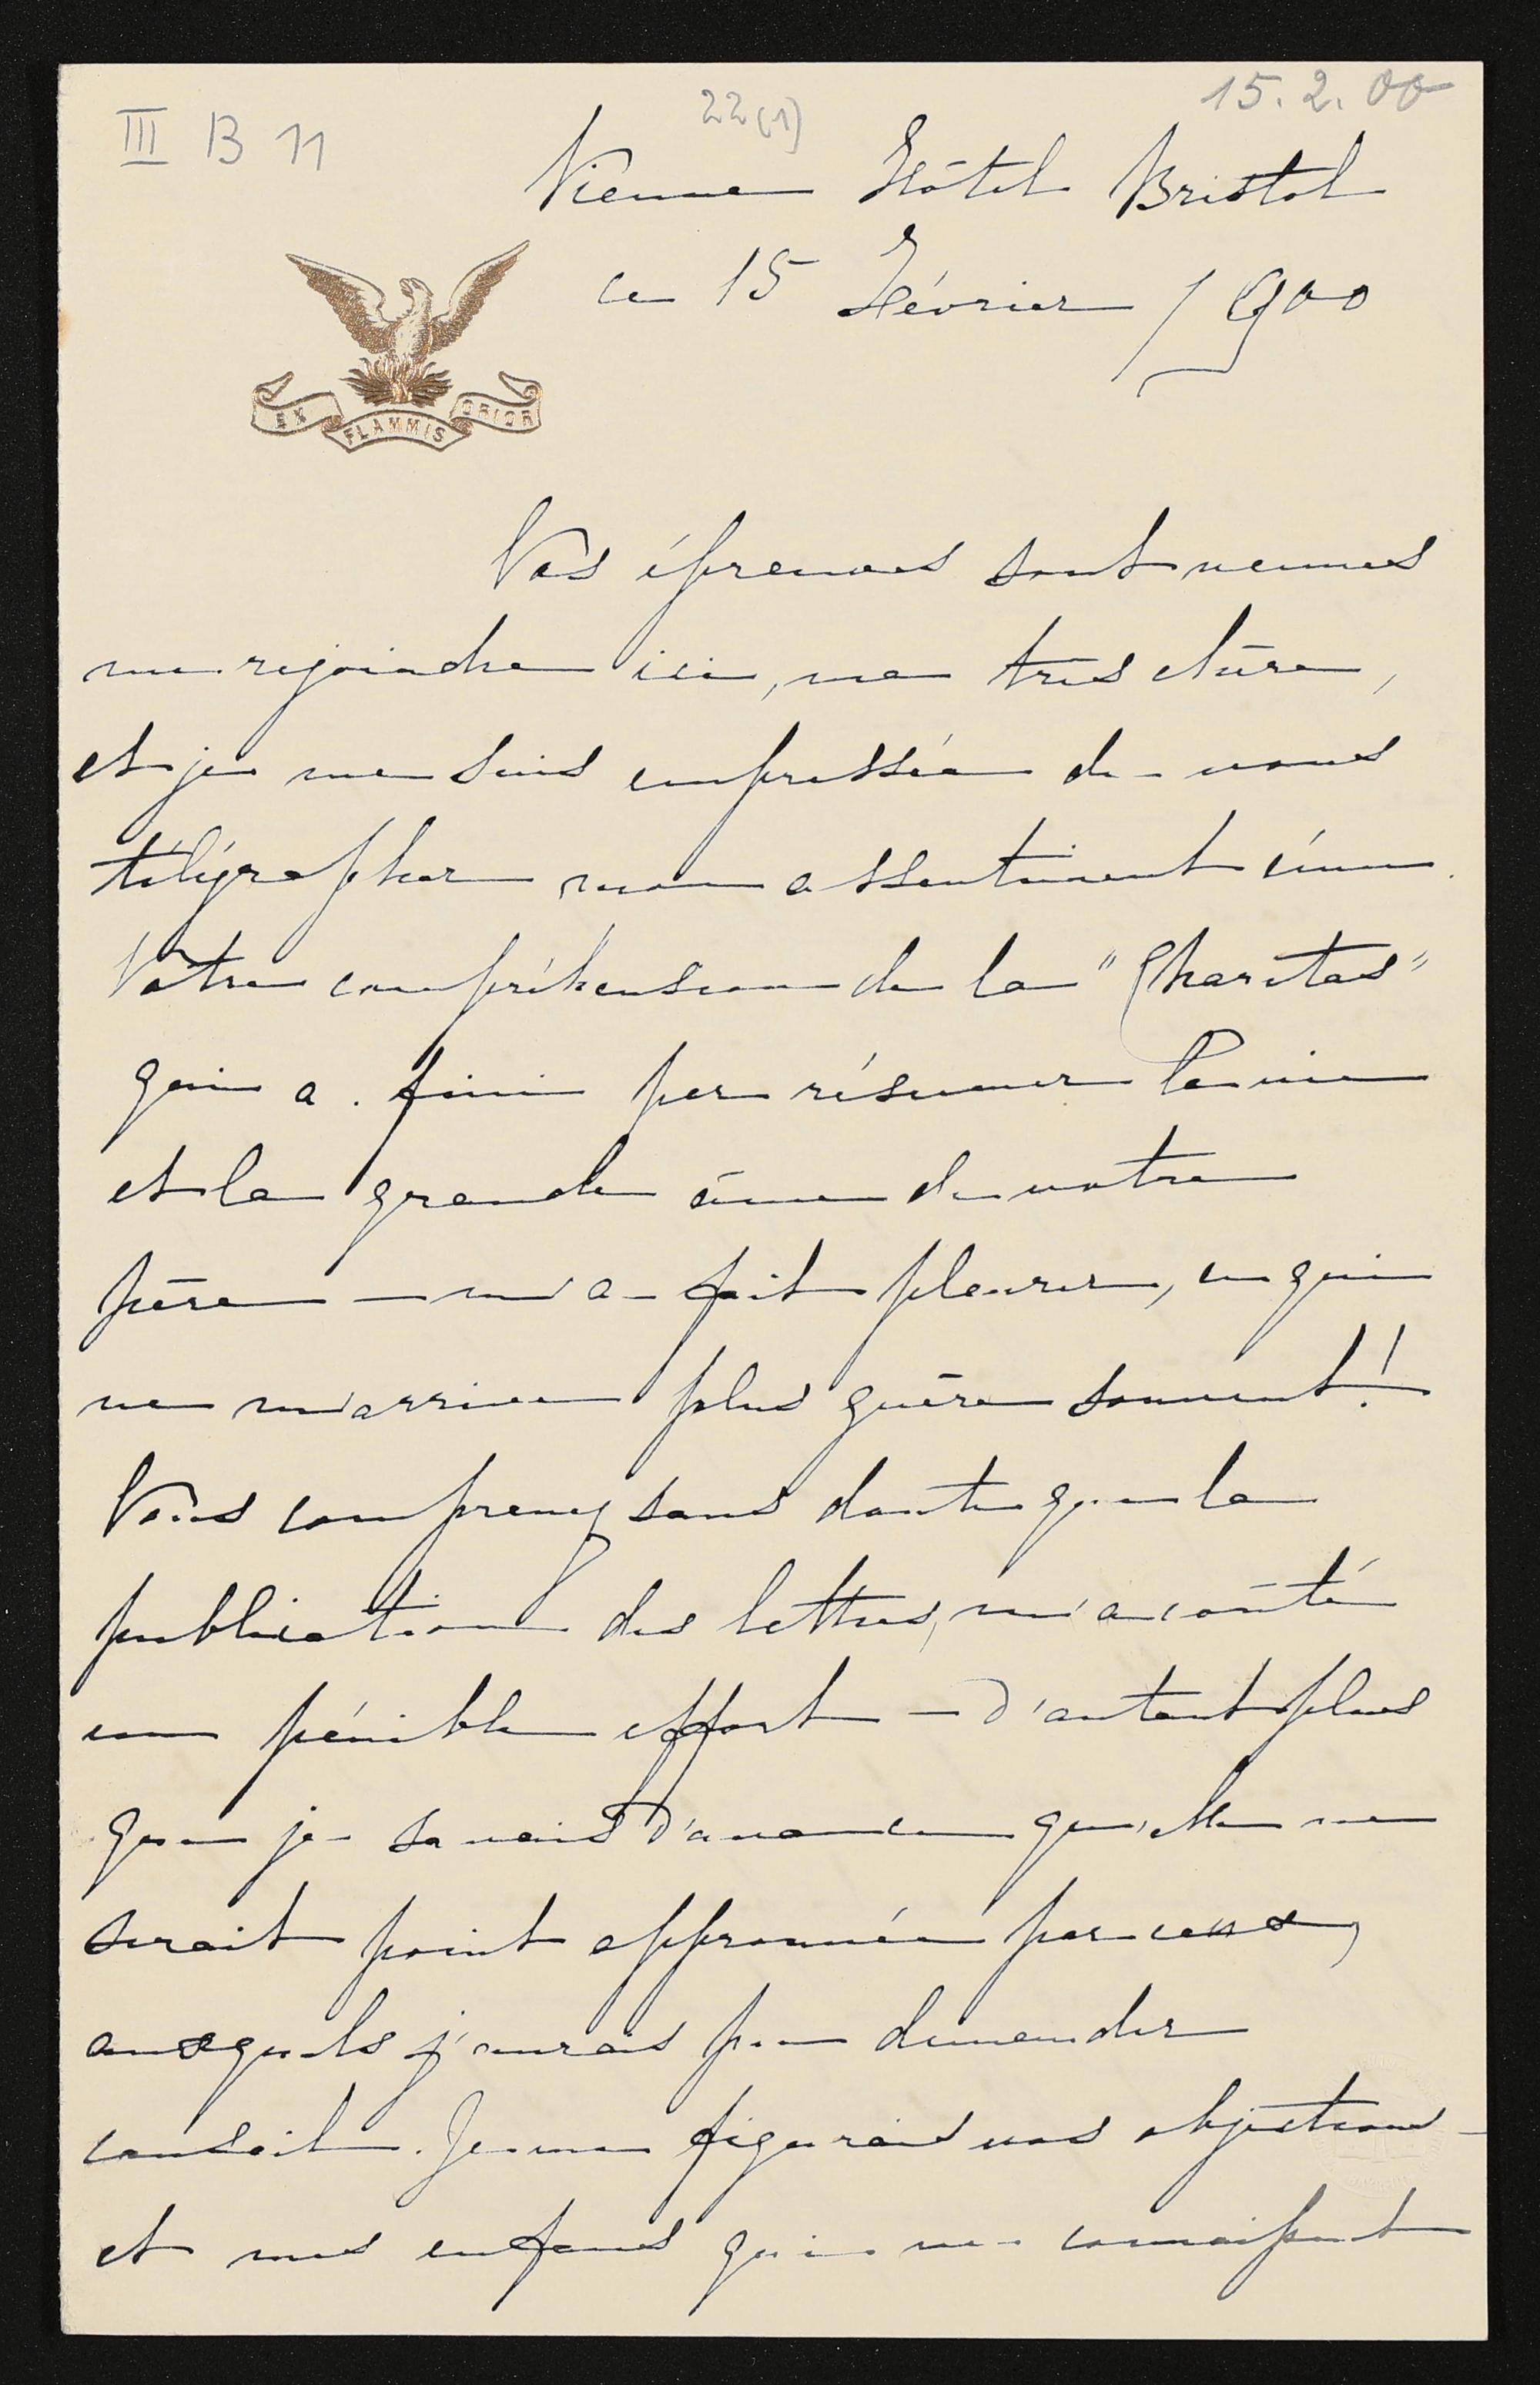 15.2.00
III B 11
22(1)
Vienne Hôtel Bristol
ce 15 Février 1900
EX FLAMMIS ORIOR
Vos épreuves sont venues
me rejoindre ici, ma très chère,
et je me suis empressée de vous
télégrapher mon assentiment ému.
Votre compréhension de la "Charitas"
qui a fini par résumer la vie
et la grande âme de votre
père — m'a fait pleurer, ce qui
ne m'arrive plus guère souvent!
Vous comprenez sans doute que la
publication des lettres, m'a coûté
un pénible effort — d'autant plus
que je savais d'avance qu'elle ne
serait point approuvée par ceux,
auxquels j'aurais pu demander
conseil. Je me figurais vos objections —
et mes enfans qui ne connaissent